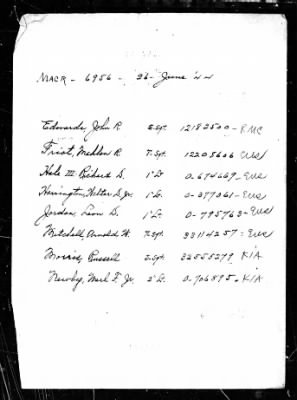 MACR - 6956 - 26 - June '44
Edwards, John R. S.Sgt. 12182500 - RMC
Friot, Mahlon R. T.Sgt. 12205606 Evd
Hale III Richard D. 1" Lt. 0-674609 - Eus
Herrington, Walter D. Jr. 1" Lt. 0-377061 - Eus
Jordan, Leon D. 1" Lt. 0-795763 - Eus
Mitchell, Arnold W. T.Sgt. 33114257 - Eus
Morris, Russell S.Sgt. 32555279 KIA
Newby, F. Jr. 2" Lt. 0-706895. KIA